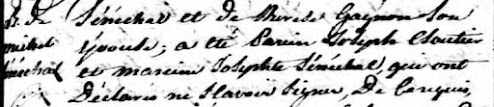 de Sénéchal et de Therese Gagnon son
michel épouse; a été Parein Joseph Cloutier
Sénéchal et mareine Josephte Sénéchal qui ont
Déclarés ne Scavoir Signer, De Ce requis,